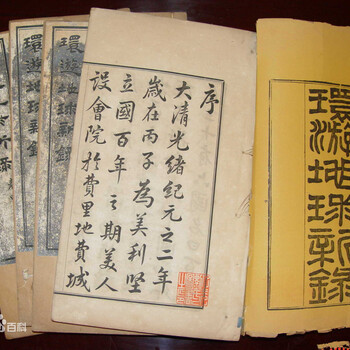 環游地球新錄
序
大清光緒紀元之二年
歲在丙子為美利堅
立國百年之期美人
設會院於費里地費城
環游地球新錄
環游地球新錄
百科